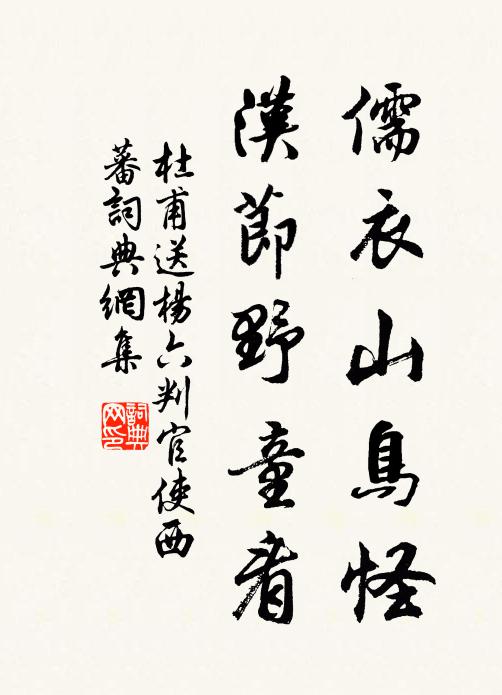 儒衣山鳥怪
漢節野童看
杜甫送楊六判官使西
蕃詞典網集
詞典网印